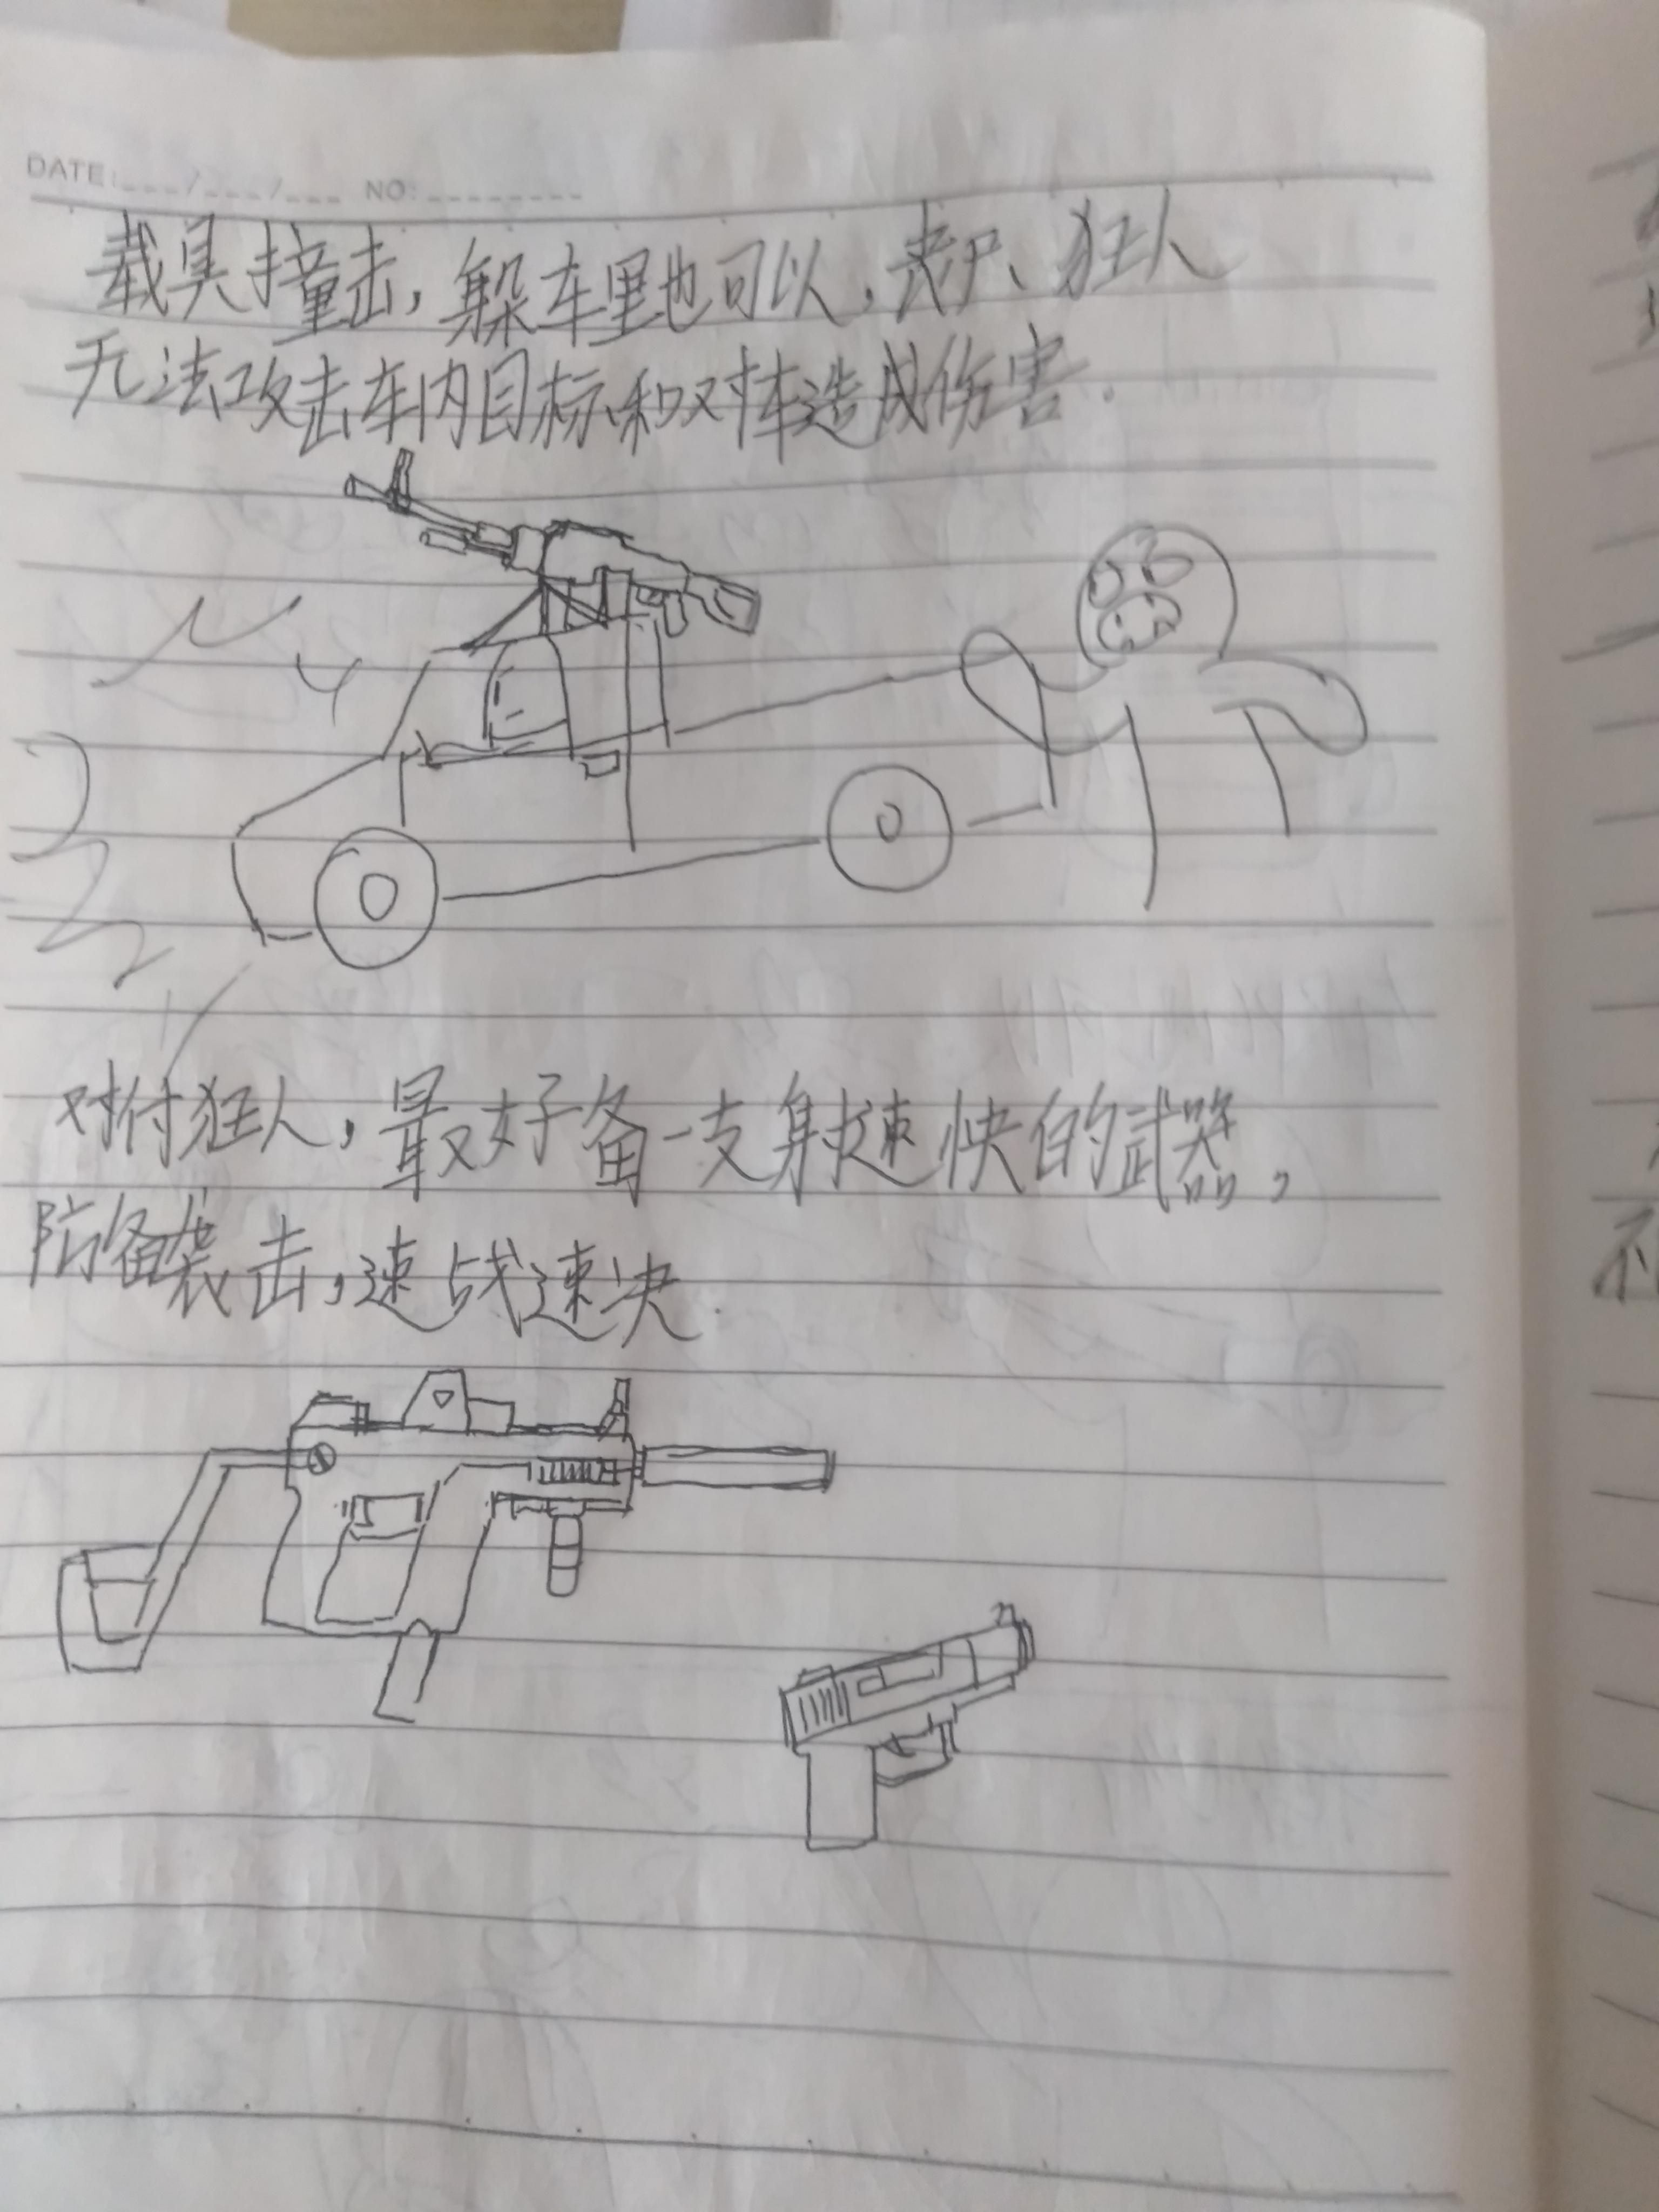 DATE:___/___/___ NO:________
载具撞击，躲车里也可以，丧尸、狂人
无法攻击车内目标和对车造成伤害.
对付狂人，最好备一支射速快的武器，
防备袭击，速战速决.
不